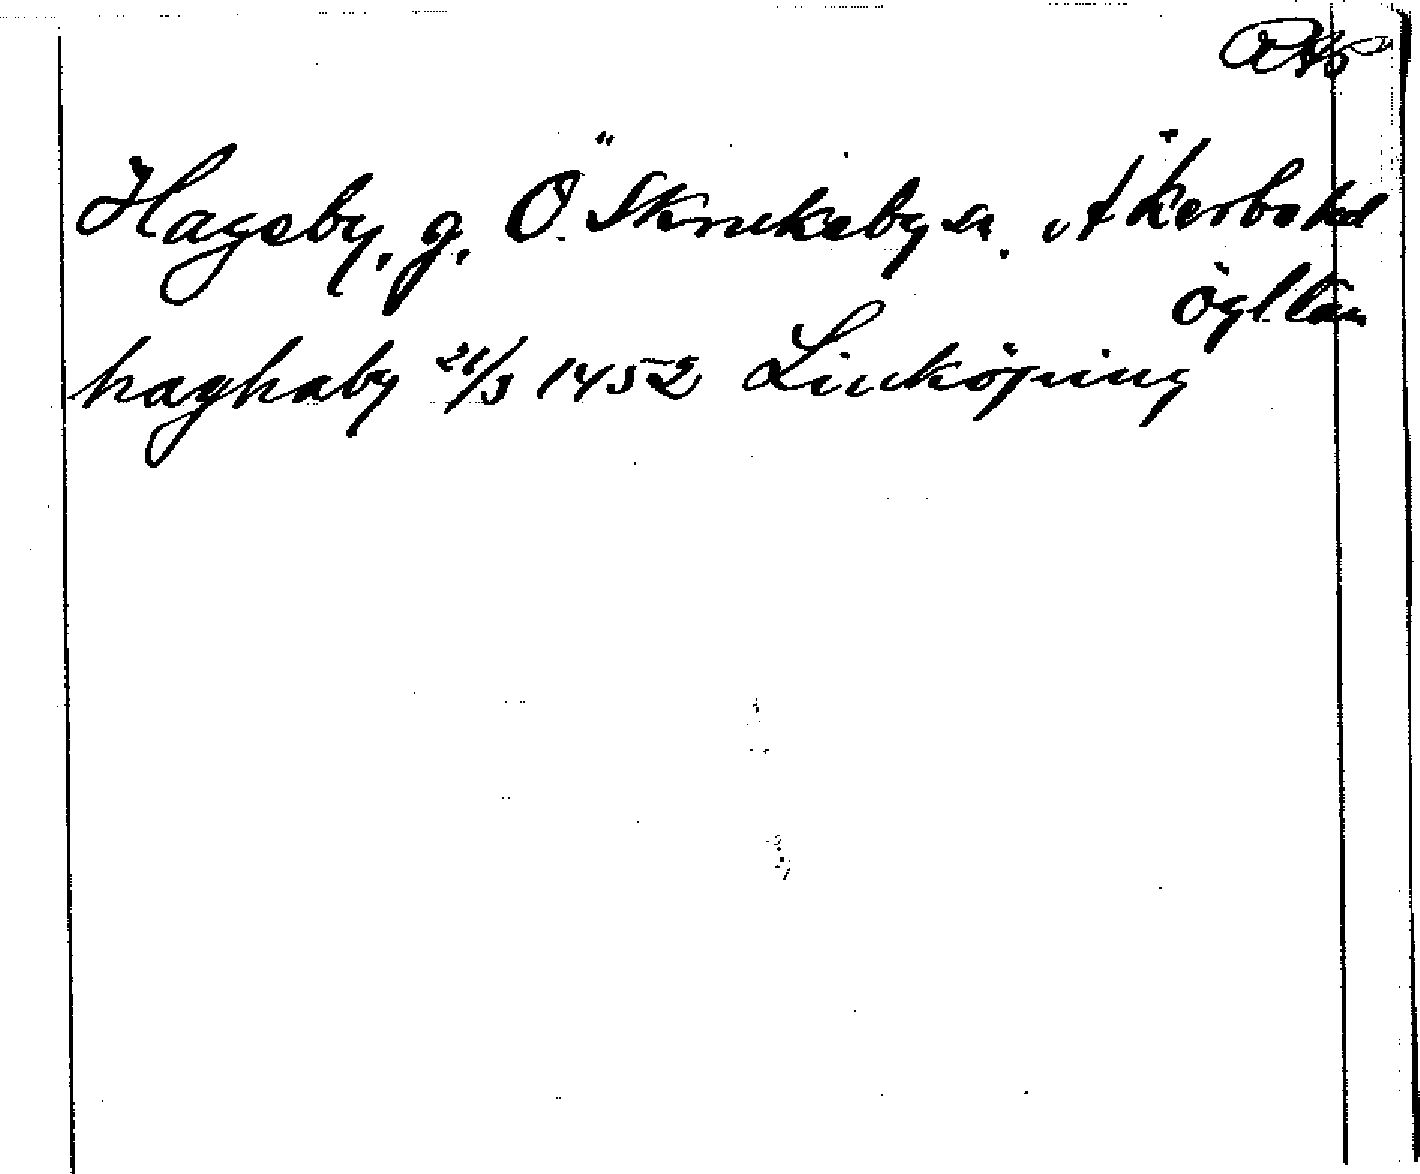 RAp
Hageby, g. Ö. Skrukeby sn. Åkerbo hd
Ögl län
haghaby 21/3 1452 Linköping